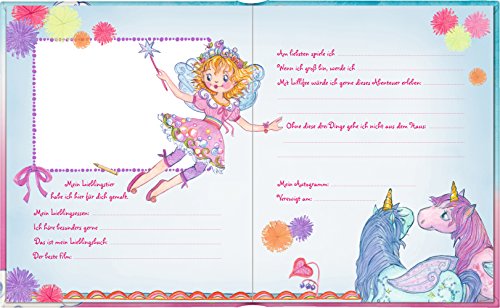 Mein Lieblingstier
habe ich hier für dich gemalt.
Mein Lieblingsessen:
Ich höre besonders gerne
Das ist mein Lieblingsbuch:
Der beste Film:
Am liebsten spiele ich
Wenn ich groß bin, werde ich
Mit Lillifee würde ich gerne dieses Abenteuer erleben:
Ohne diese drei Dinge gehe ich nicht aus dem Haus:
Mein Autogramm:
Verewigt am: